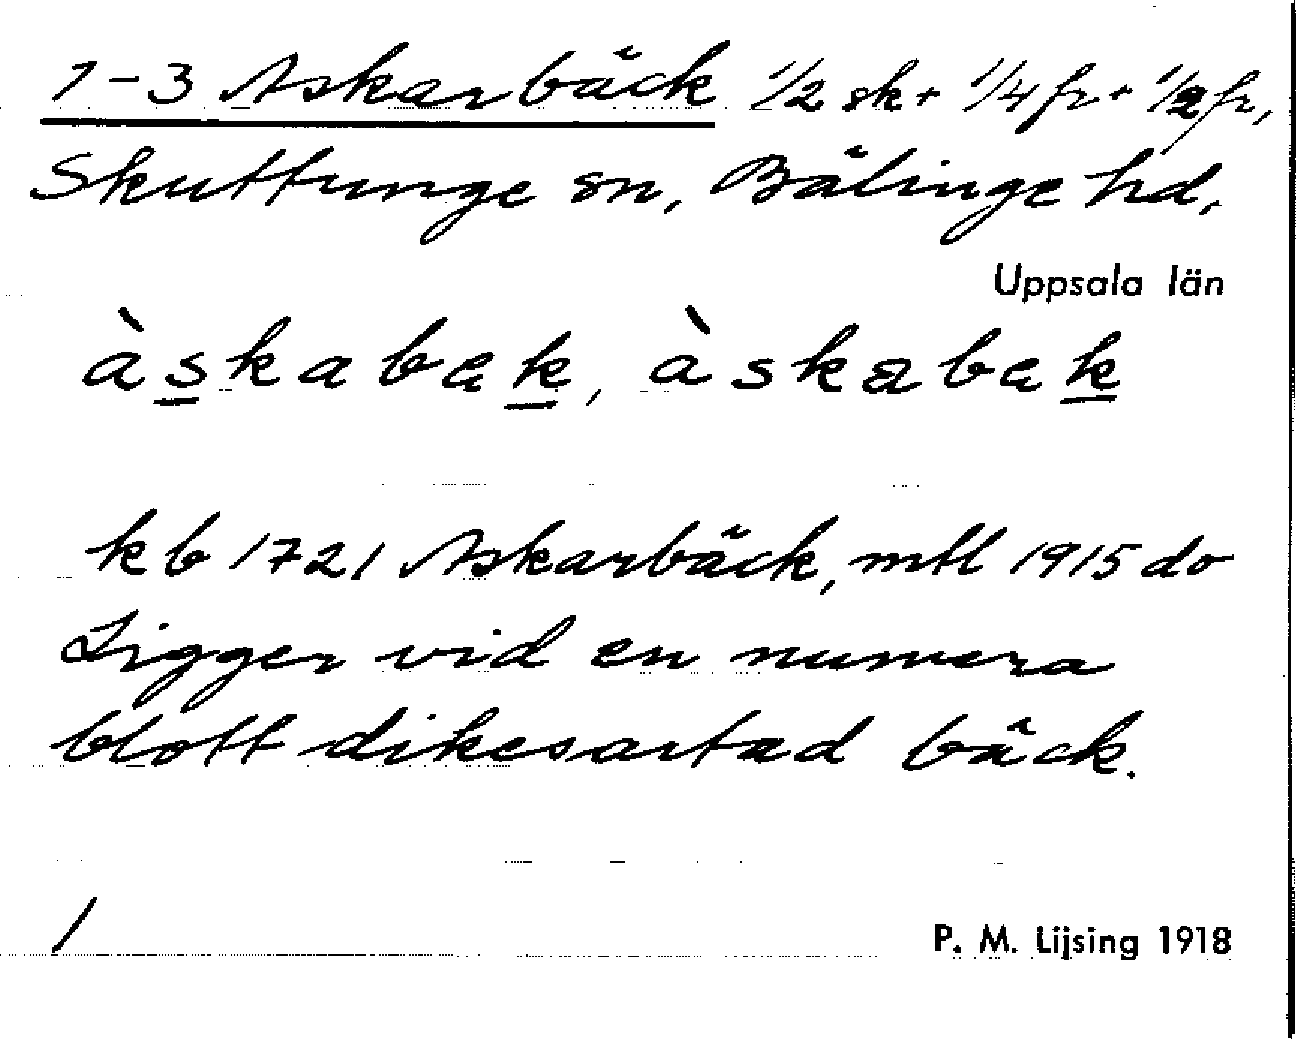 1-3 Askarbäck 1/2 sk + 1/4 fr + 1/2 fr,
Skuttunge sn, Bälinge hd,
Uppsala län
àskabak, àskabak
kb 1721 Askarbäck, mtl 1915 do
Ligger vid en numera
blott dikesartad bäck.
/
P. M. Lijsing 1918